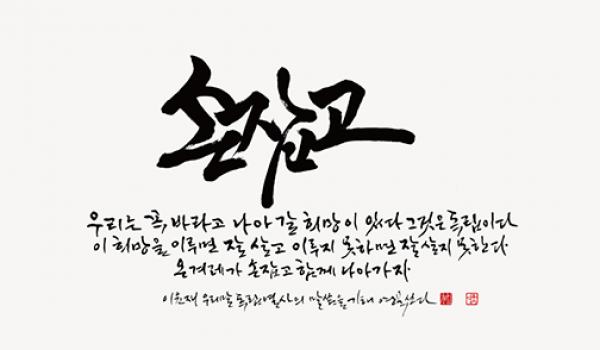 손잡고
우리는 꼭, 바라고 나아갈 희망이 있다 그것은 독립이다
이 희망을 이루면 잘 살고 이루지 못하면 잘 살지 못한다.
온겨레가 손잡고 함께 나아가자.
이윤재 우리말 독립열사의 말씀을 기해